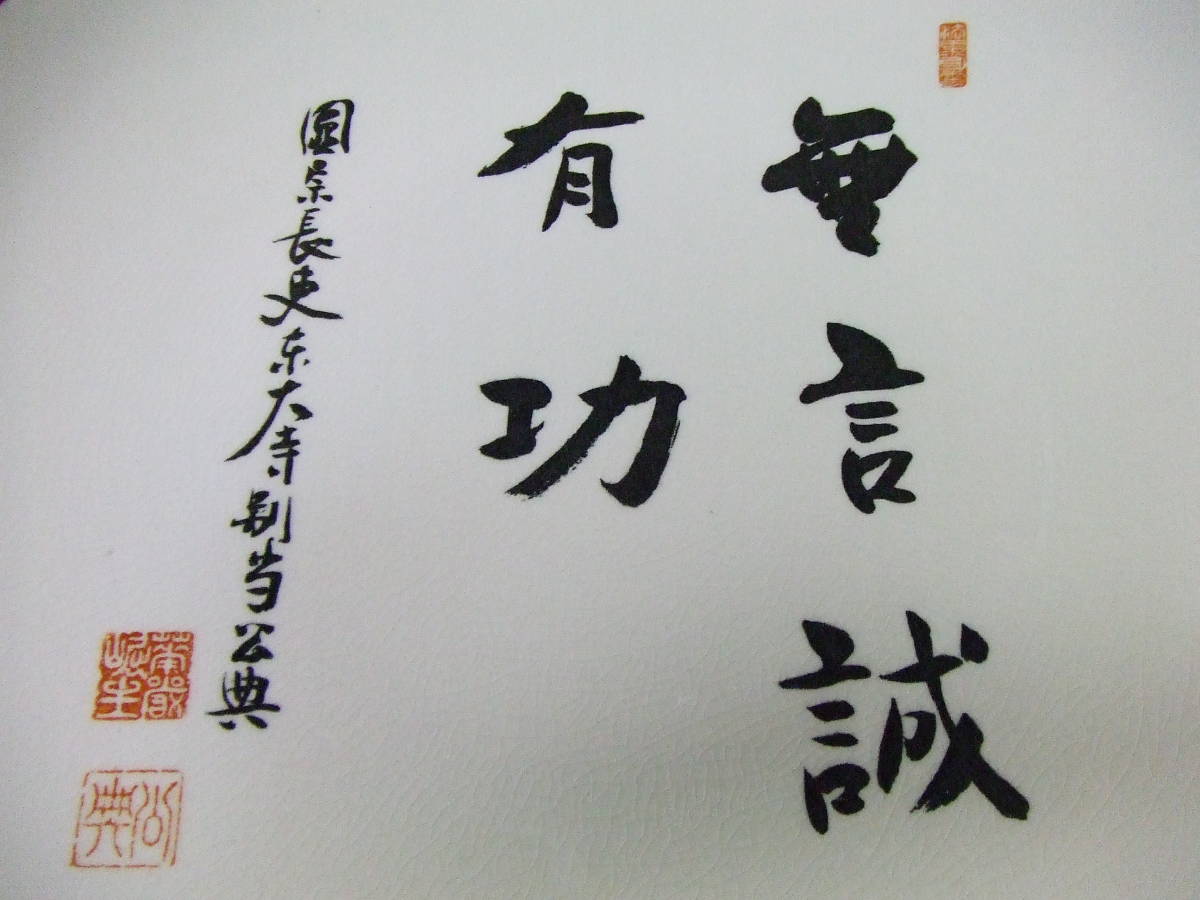 無言誠
有功
圓宗長吏東大寺別当公典
公典